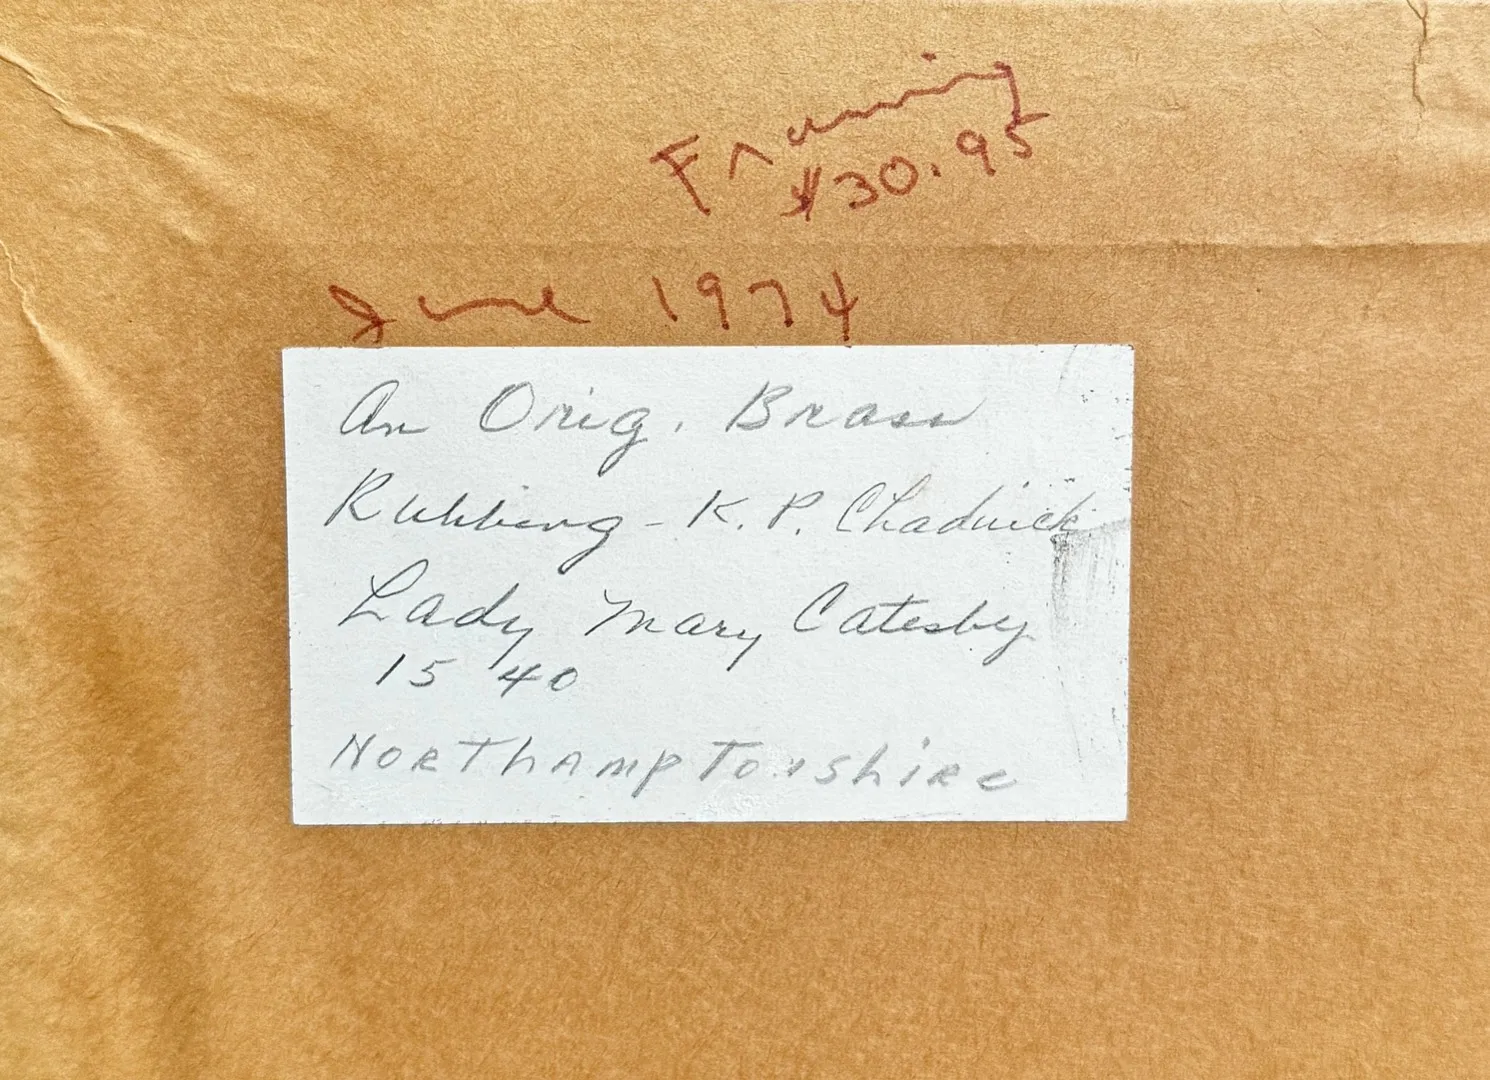 Framing
$30.95
June 1974
An Orig. Brass
Rubbing - K. P. Chadwick
Lady Mary Catesby
1540
Northamptonshire